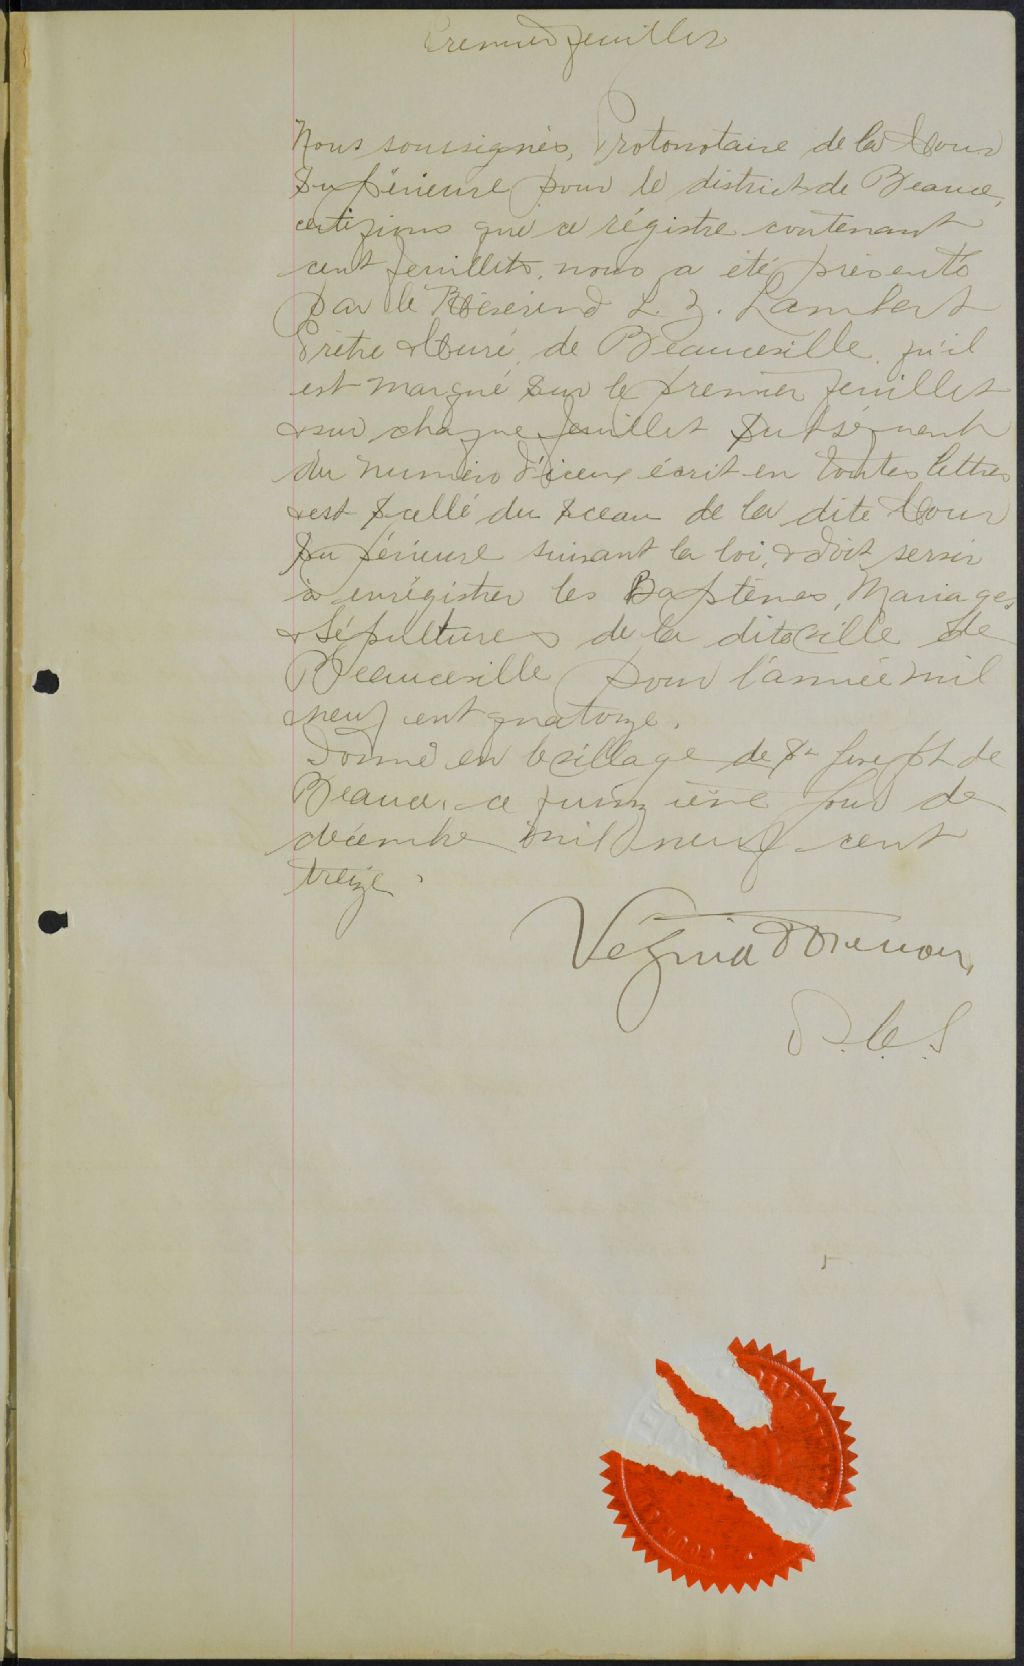 Premier feuillet
Nous soussignés, Protonotaire de la Cour
Supérieure pour le district de Beauce,
certifions que ce régistre contenant
cent feuillets, nous a été présenté
par le Révérend L. Z. Lambert
Prêtre & Curé, de Beauceville, qu'il
est marqué sur le premier feuillet
& sur chaque feuillet subséquent
du numéro d'iceux écrit en toutes lettres
& est scellé du sceau de la dite Cour
Supérieure suivant la loi, & doit servir
à enrégistrer les Baptêmes, Mariages
& Sépultures de la dite ville de
Beauceville pour l'année mil
neuf cent quatorze.
Donné en le village de St Joseph de
Beauce, ce quinzième jour de
décembre mil neuf cent
treize.
Vézina &
P.C.S